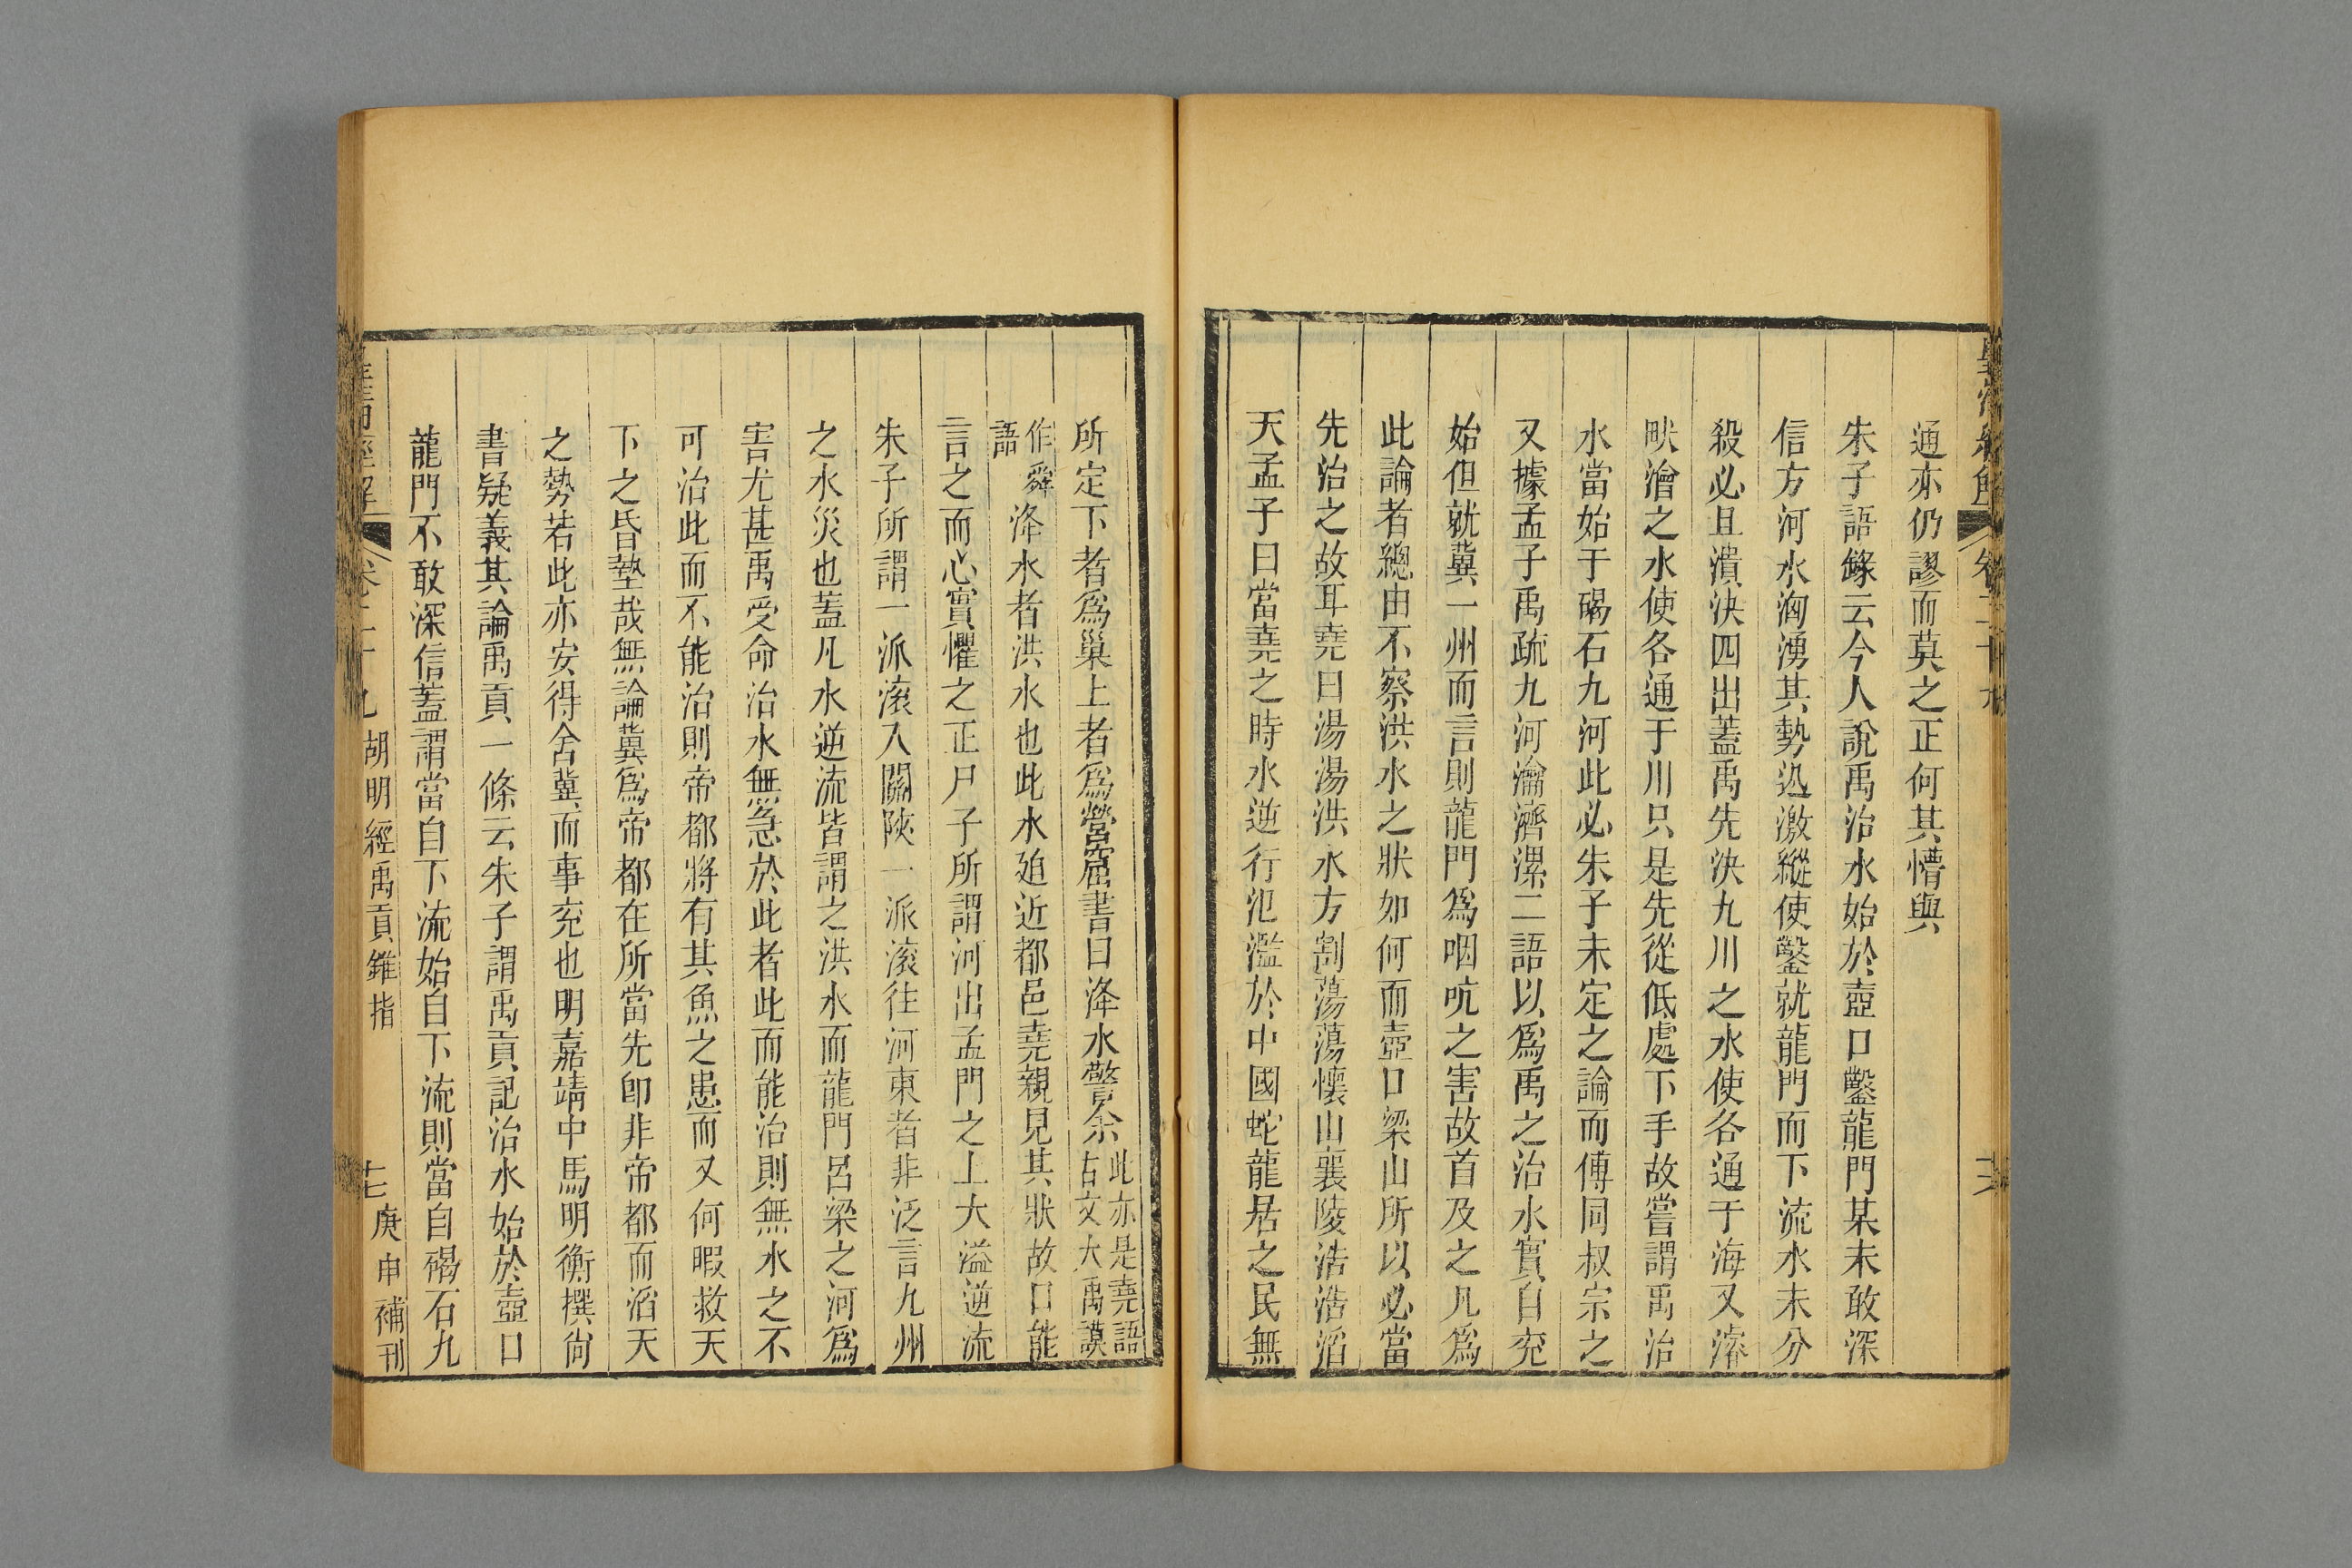 皇清經解
卷二十九
通亦仍謬而莫之正何其懵與
朱子語錄云今人說禹治水始於壺口鑿龍門某未敢深
信方河水洶湧其勢迅激縱使鑿就龍門而下流水未分
殺必且潰決四出蓋禹先決九川之水使各通于海又濬
畎澮之水使各通于川只是先從低處下手故嘗謂禹治
水當始于碣石九河此必朱子未定之論而傅同叔宗之
又據孟子禹疏九河瀹濟漯二語以爲禹之治水實自兗
始但就冀一州而言則龍門爲咽吭之害故首及之凡爲
此論者總由不察洪水之狀如何而壺口梁山所以必當
先治之故耳堯曰湯湯洪水方割蕩蕩懷山襄陵浩浩滔
天孟子曰當堯之時水逆行氾濫於中國蛇龍居之民無
所定下者爲巢上者爲營窟書曰洚水警余此亦是堯語古文大禹謨
作舜語洚水者洪水也此水廹近都邑堯親見其狀故口能
言之而心實懼之正尸子所謂河出孟門之上大溢逆流
朱子所謂一派滾入關陝一派滾往河東者非泛言九州
之水災也蓋凡水逆流皆謂之洪水而龍門呂梁之河爲
害尤甚禹受命治水無急於此者此而能治則無水之不
可治此而不能治則帝都將有其魚之患而又何暇救天
下之昏墊哉無論冀爲帝都在所當先即非帝都而滔天
之勢若此亦安得舍冀而事兗也明嘉靖中馬明衡撰尙
書疑義其論禹貢一條云朱子謂禹貢記治水始於壺口
龍門不敢深信蓋謂當自下流始自下流則當自碣石九
皇淸經解 卷二十九 胡明經禹貢錐指 十七 庚申補刊